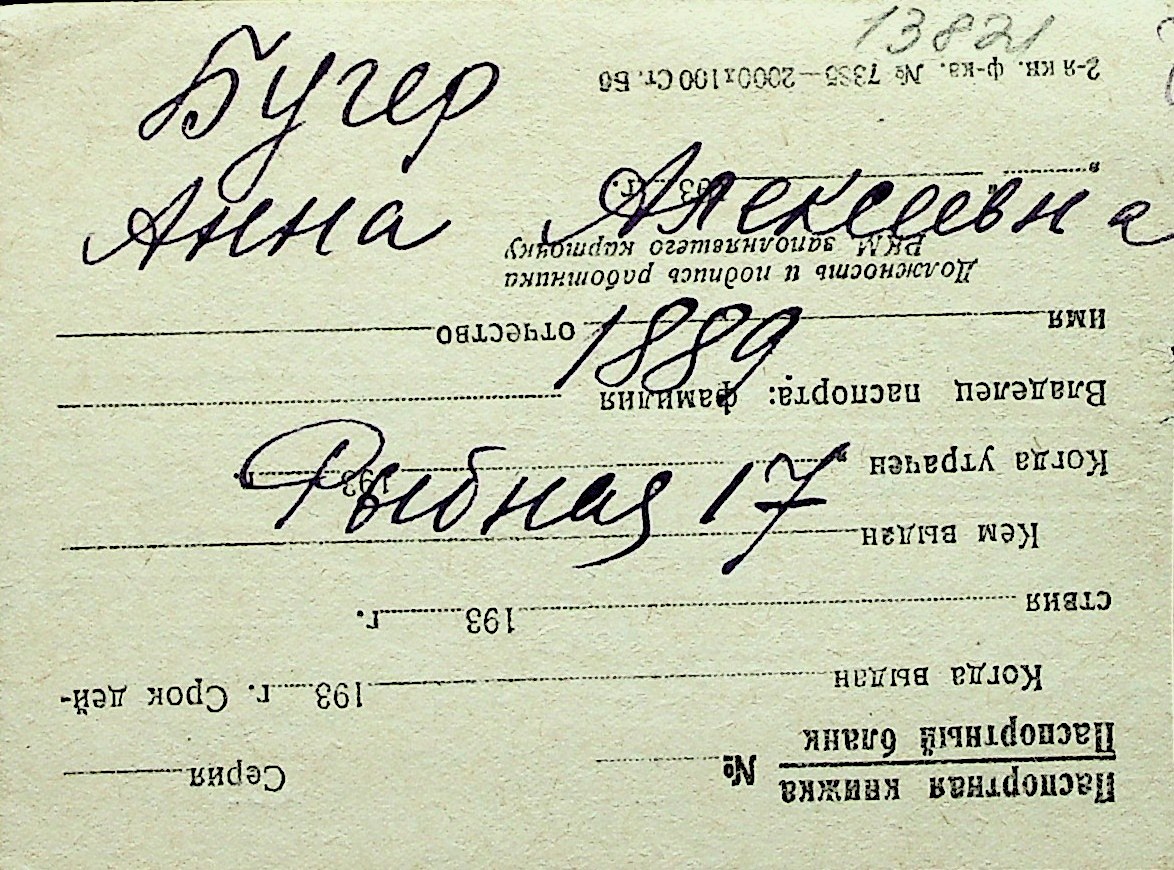 13821
Бугер
Анна Алексеевна
1889
Рыбная 17
Паспортная книжка
Паспортный бланк
№ Серия
Когда выдан 193 г. Срок дей-
ствия 193 г.
Кем выдан
Когда утрачен „ 193 г.
Владелец паспорта: фамилия
имя отчество
Должность и подпись работника
РКМ заполнявшего карточку
„ “ 193 г.
2-я кн. ф-ка. № 7335—2000х100 Ст. Бб